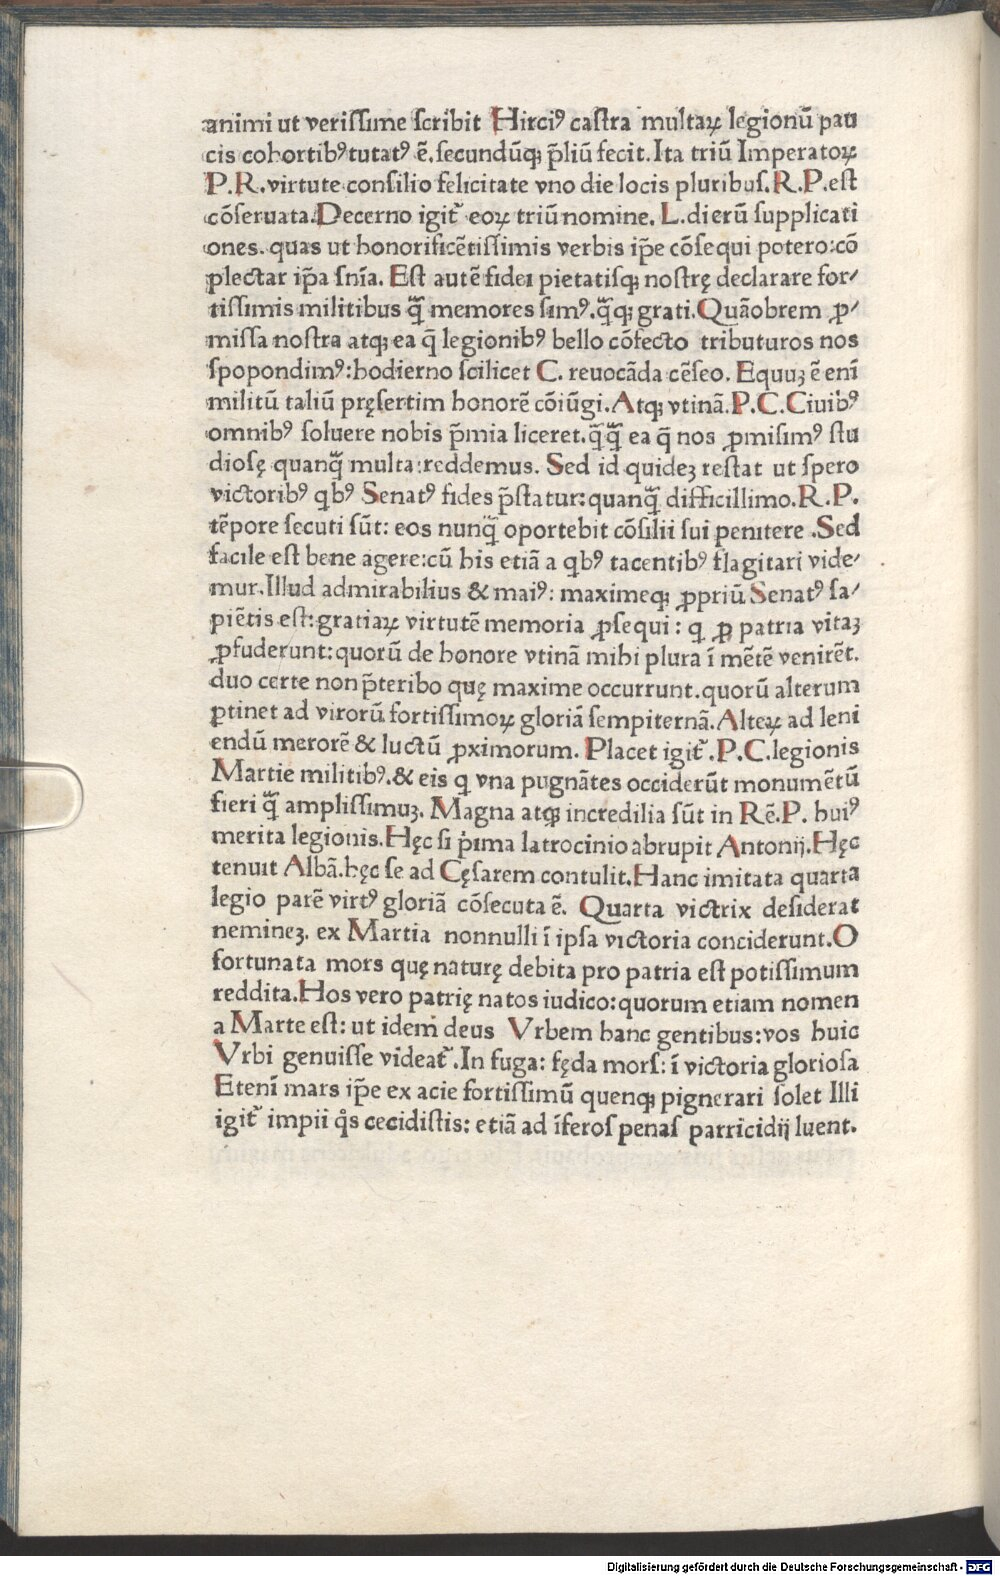 animi ut verissime scribit Hirciꝰ castra multaꝝ legionū pau
cis cohortibꝰ tutatꝰ ē. secundūqꝫ p̄liū fecit. Ita triū Imperatoꝝ
P.R. virtute consilio felicitate vno die locis pluribus. R.P. est
cōseruata. Decerno igit᷑ eoꝝ triū nomine. L. dierū supplicati
ones. quas ut honorificētissimis verbis ip̄e cōsequi potero: cō
plectar ip̄a sn̄ia. Est autē fidei pietatisqꝫ nostrę declarare for/
tissimis militibus q̄ꝫ memores simꝰ. q̄ꝫqꝫ grati. Quāobrem ꝓ/
missa nostra atqꝫ ea q̄ legionibꝰ bello cōfecto tributuros nos
spopondimꝰ: hodierno scilicet C. reuocāda cēseo. Equuꝫ ē enī
militū taliū pręsertim honorē cōiūgi. Atqꝫ vtinā. P.C. Ciuibꝰ
omnibꝰ soluere nobis p̄mia liceret. q̄q̄ꝫ ea q̄ nos ꝓmisimꝰ stu
diosę quanq̄ꝫ multa: reddemus. Sed id quideꝫ restat ut spero
victoribꝰ qbꝰ Senatꝰ fides p̄statur: quanq̄ꝫ difficillimo. R.P.
tēpore secuti sūt: eos nunq̄ꝫ oportebit cōsilii sui penitere. Sed
facile est bene agere: cū his etiā a qbꝰ tacentibꝰ flagitari vide/
mur. Illud admirabilius & maiꝰ: maximeqꝫ ꝓpriū Senatꝰ sa/
piētis est: gratiaꝝ virtutē memoria ꝓsequi: q ꝓ patria vitaꝫ
ꝓfuderunt: quorū de honore vtinā mihi plura ī mētē venirēt.
duo certe non p̄teribo quę maxime occurrunt. quorū alterum
ꝑtinet ad virorū fortissimoꝝ gloriā sempiternā. Alteꝝ ad leni
endū merorē & luctū ꝓximorum. Placet igit᷑. P.C. legionis
Martie militibꝰ. & eis q vna pugnātes occiderūt monumētū
fieri q̄ꝫ amplissimuꝫ. Magna atqꝫ incredilia sūt in Rē.P. huiꝰ
merita legionis. Hęc si pͥma latrocinio abrupit Antonij. Hęc
tenuit Albā. hęc se ad Cęsarem contulit. Hanc imitata quarta
legio parē virtꝰ gloriā cōsecuta ē. Quarta victrix desiderat
nemineꝫ. ex Martia nonnulli ī ipsa victoria conciderunt. O
fortunata mors quę naturę debita pro patria est potissimum
reddita. Hos vero patrię natos iudico: quorum etiam nomen
a Marte est: ut idem deus Vrbem hanc gentibus: vos huic
Vrbi genuisse videat᷑. In fuga: fęda mors: ī victoria gloriosa
Etenī mars ip̄e ex acie fortissimū quenqꝫ pignerari solet Illi
igit᷑ impii qͦs cecidistis: etiā ad īferos penas parricidij luent.
Digitalisierung gefördert durch die Deutsche Forschungsgemeinschaft - DFG